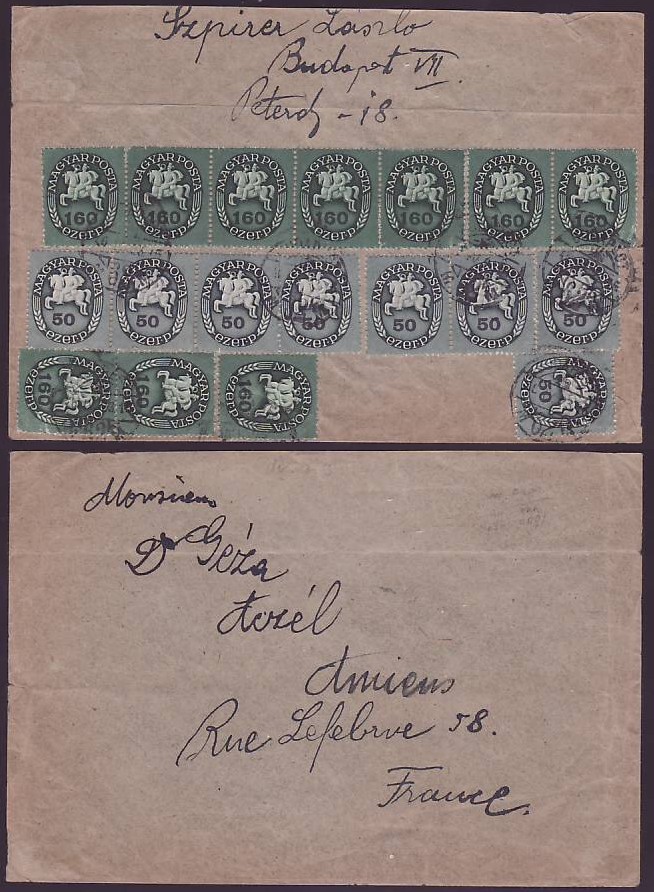 Szpirer László
Budapest VII.
Peterdy - 18.
MAGYAR POSTA 160 ezerP.
MAGYAR POSTA 160 ezerP.
MAGYAR POSTA 160 ezerP.
MAGYAR POSTA 160 ezerP.
MAGYAR POSTA 160 ezerP.
MAGYAR POSTA 160 ezerP.
MAGYAR POSTA 160 ezerP.
MAGYAR POSTA 50 ezerP.
MAGYAR POSTA 50 ezerP.
MAGYAR POSTA 50 ezerP.
MAGYAR POSTA 50 ezerP.
MAGYAR POSTA 50 ezerP.
MAGYAR POSTA 50 ezerP.
MAGYAR POSTA 50 ezerP.
MAGYAR POSTA 160 ezerP.
MAGYAR POSTA 160 ezerP.
MAGYAR POSTA 160 ezerP.
MAGYAR POSTA 50 ezerP.
Monsieur
Dr Géza
Amiens
Rue Lefebvre 58.
France.